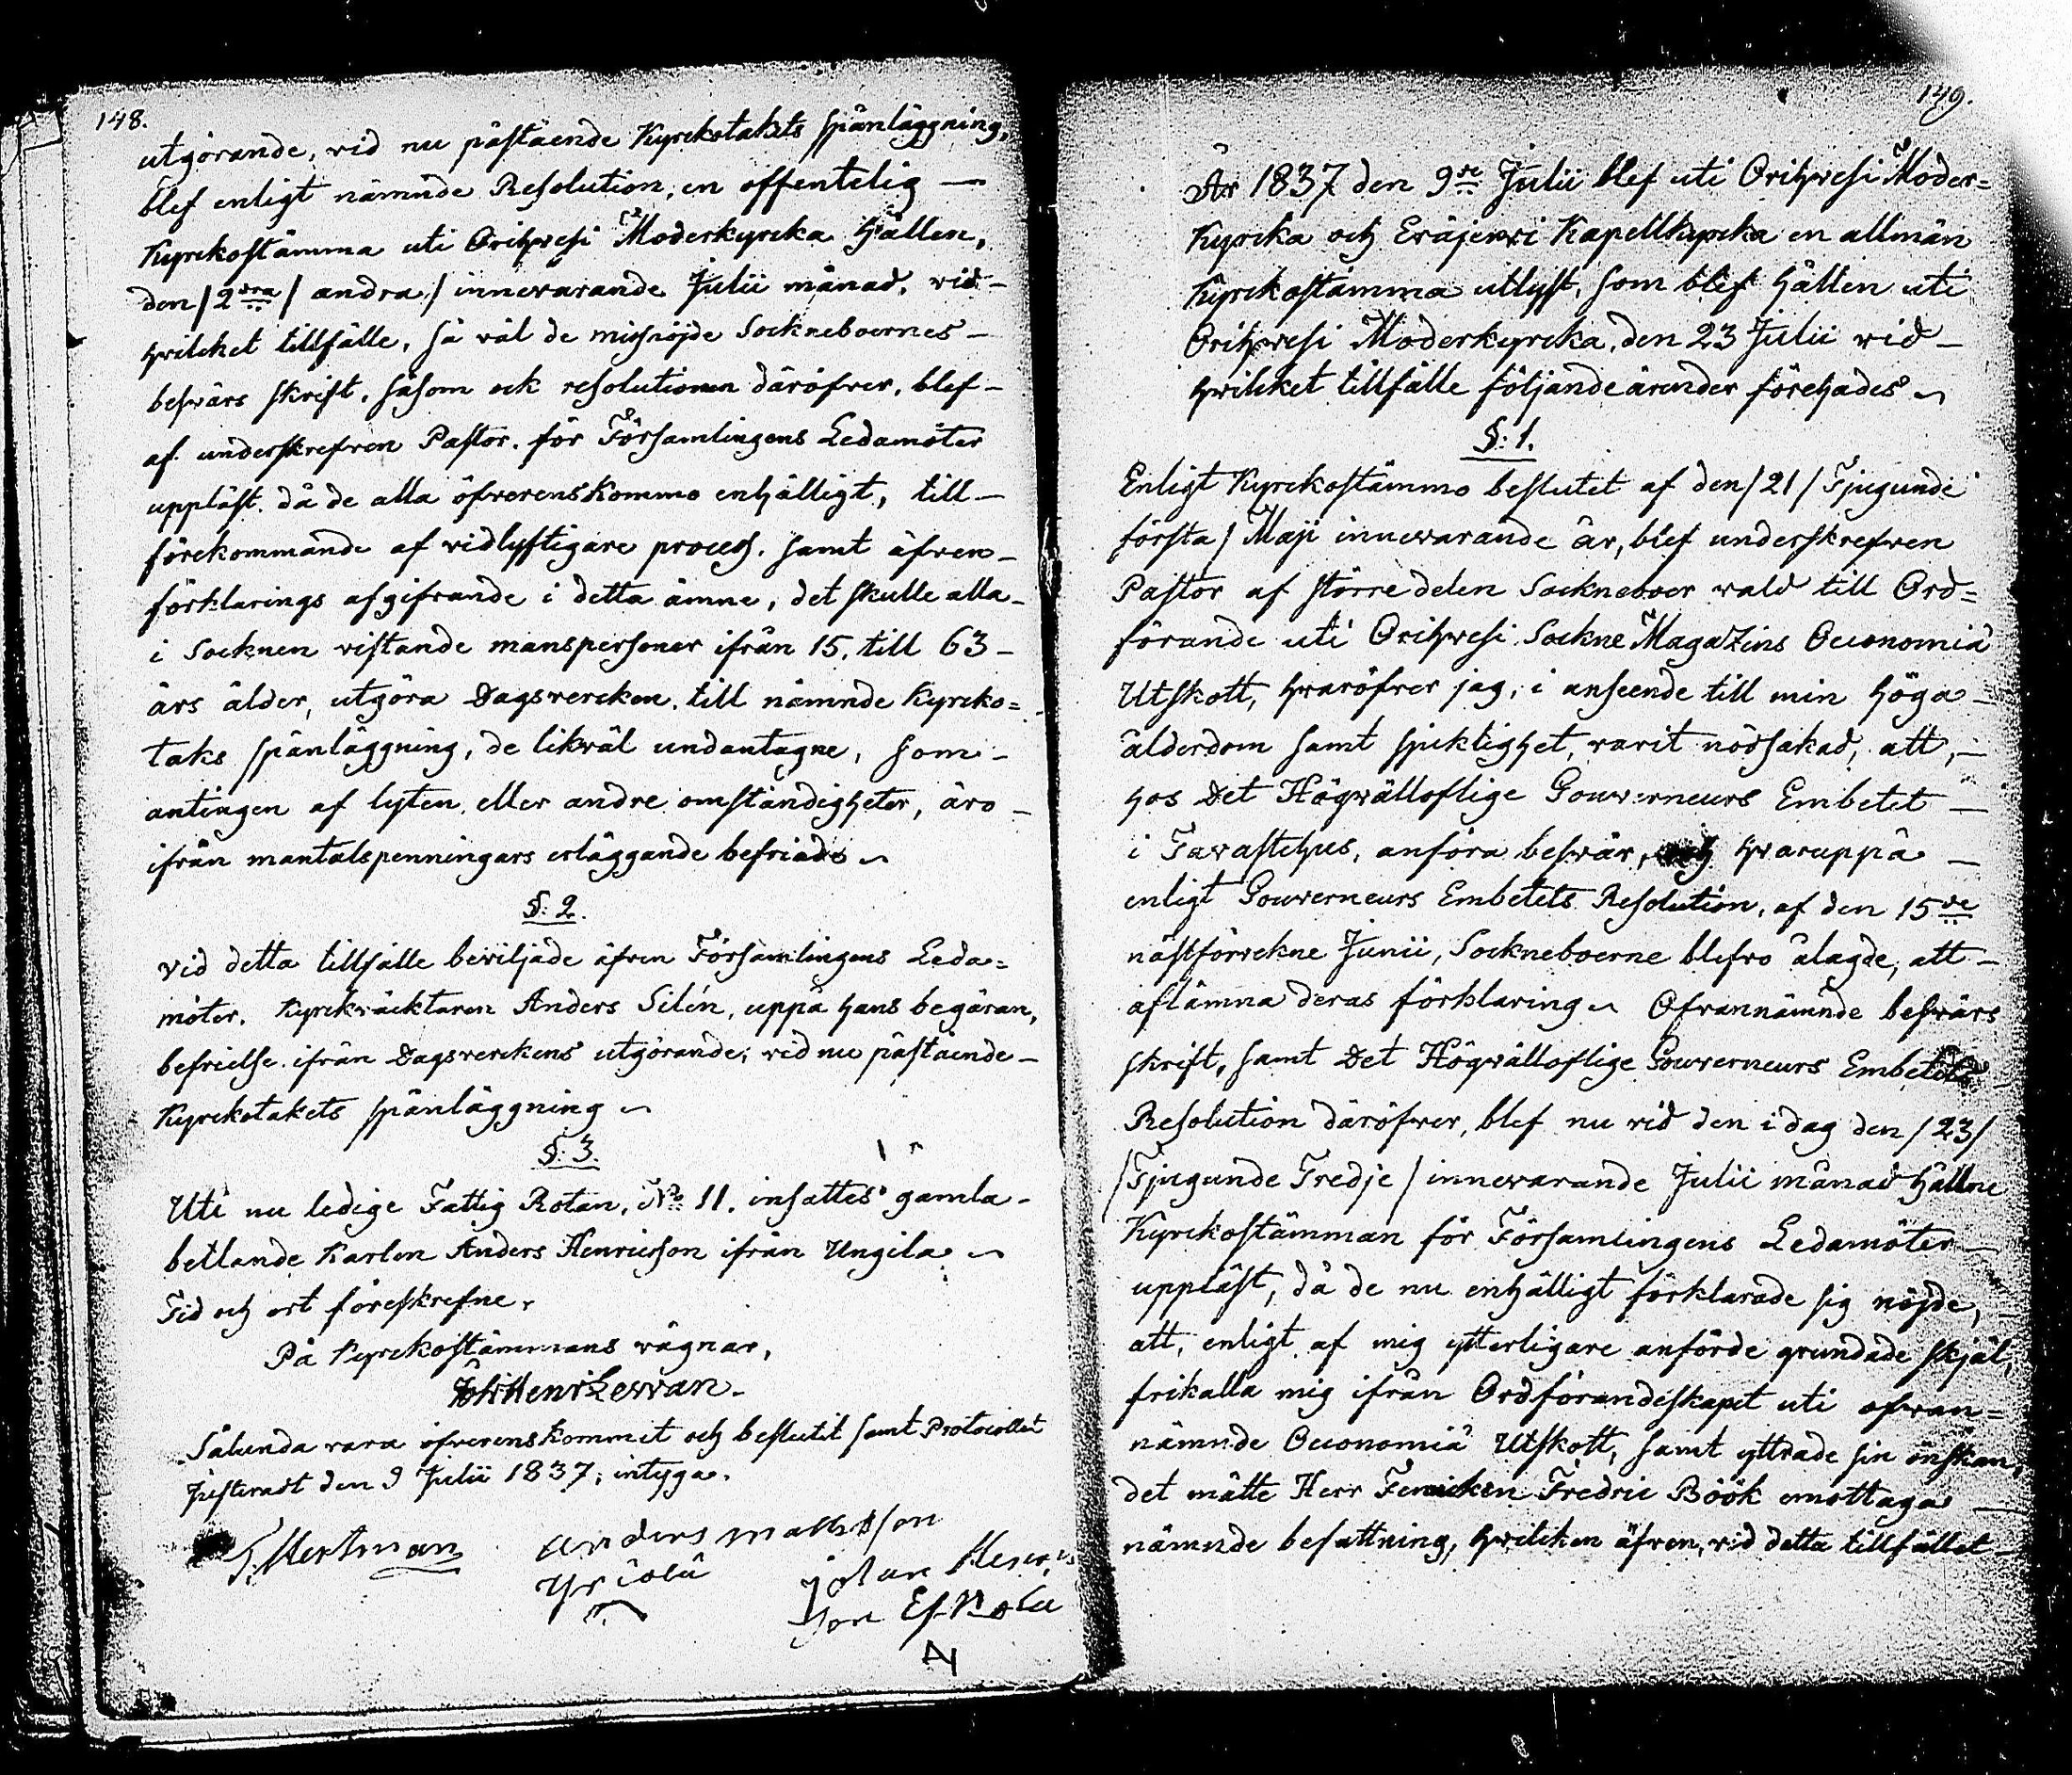 148.
utgörande, vid nu påstående Kyrckotakets spånläggning,
blef enligt nämnde Resolution, en offentelig —
Kyrckostämma uti Orihvesi Moderkyrcka hållen,
den /2dra/ andra/ innevarande Julii månad, vid —
hvilcket tillfälle, så väl de missnöjde Sockneboernes —
besvärs skrift, såsom ock resolutionen däröfver, blef —
af underskrefven Pastor, för Församlingens Ledamöter
uppläst, då de alla öfverenskommo enhälligt, till —
förekommande af vidlyftigare process, samt äfven —
förklarings afgifvande i detta ämne, det skulle alla —
i Socknen vistande manspersoner ifrån 15. till 63 —
års ålder, utgöra Dagsvercken, till nämnde Kyrcko=
taks spånläggning, de likväl undantagne, som —
antingen af lyten eller andre omständigheter, äro —
ifrån mantalspenningars erläggande befriade
§: 2.
vid detta tillfälle beviljade äfven Församlingens Leda=
möter, Kyrckväcktaren Anders Silén, uppå hans begäran,
befrielse ifrån Dagsverckens utgörande, vid nu påstående —
Kyrckotakets spånläggning
§: 3.
Uti nu ledige Fattig Rotan, No 11. insattes gamla —
betlande Karlen Anders Henricsson ifrån Ungila
Tid och ort föreskrefne,
På Kyrckostämmans vägnar,
Joh: Henr: Levvan.
Sålunda vara öfverenskommit och beslutit samt Protocollet
Justeradt den 9 Julii 1837, intyga.
Anders Mattsson
Yriölä
Johan Henrics
son Eskola
149.
År 1837 den 9de Julii blef uti Orihvesi Moder=
Kyrcka och Eräjervi Kapellkyrcka en allmän
Kyrckostämma utlyst, som blef hållen uti
Orihvesi Moderkyrcka, den 23 Julii vid —
hvilcket tillfälle följande ärender förehades
§: 1.
Enligt Kyrckostämmo beslutet af den /21/ Tjugunde
första/ Maji innevarande år, blef underskrefven
Pastor af större delen Sockneboer vald till Ord=
förande uti Orihvesi Sockne Magazins Oeconomiä
Utskott, hvaröfver jag, i anseende till min höga —
ålderdom samt sjuklighet, varit nödsakad, att, —
hos Det Högvälloflige Gouverneurs Embetet —
i Tavastehus, anföra besvär, hvaruppå —
enligt Gouverneurs Embetets Resolution, af den 15de
nästförvekne Junii, Sockneboerne blefvo ålagde, att —
aflämna deras förklaring Ofvannämnde besvärs
skrift, samt Det Högvälloflige Gouverneurs Embetets
Resolution däröfver, blef nu vid den i dag den /23/
/Tjugunde Tredje/ innevarande Julii månad hållne
Kyrckostämman för Församlingens Ledamöter —
uppläst, då de nu enhälligt förklarade sig nöjde, —
att, enligt af mig ytterligare anförde grundade skjäl,
frikalla mig ifrån Ordförandeskapet uti ofvan=
nämnde Oeconomiä Utskott, samt yttrade sin önskan,
det måtte Herr Fenricken Fredric Böök emottaga —
nämnde befattning, hvilcken äfven, vid detta tillfället —